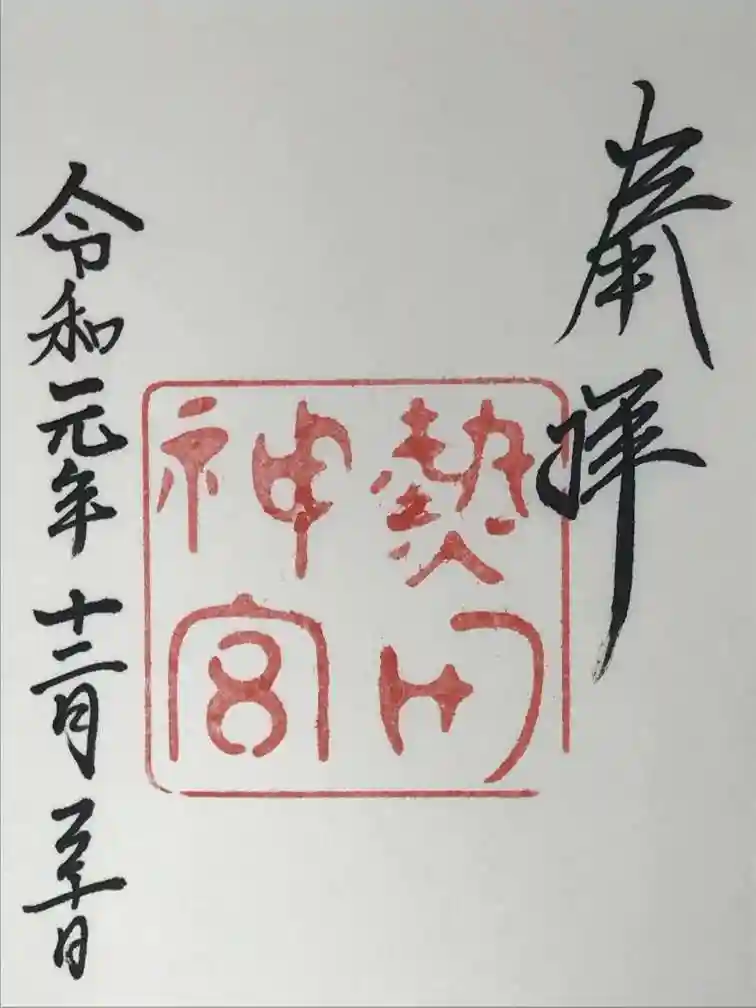 奉拝
熱田
神宮
令和元年十二月三十日